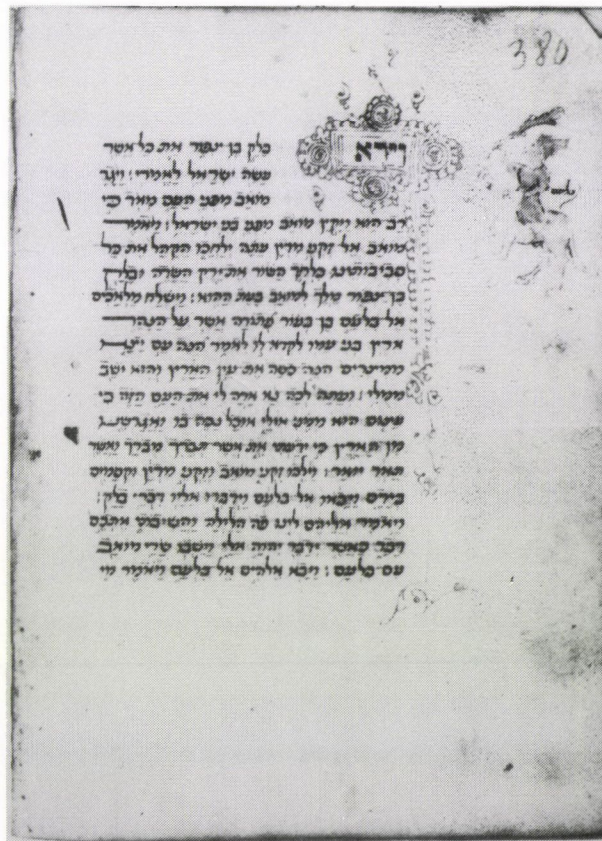 380
וירא
בלק בן צפור את כל אשר
עשה ישראל לאמרי: ויגר
מואב מפני העם מאד כי
רב הוא ויקץ מואב מפני בני ישראל: ויאמר
מואב אל זקני מדין עתה ילחכו הקהל את כל
סביבותינו כלחך השור את ירק השדה ובלק
בן צפור מלך למואב בעת ההוא: וישלח מלאכים
אל בלעם בן בעור פתורה אשר על הנהר
ארץ בני עמו לקרא לו לאמר הנה עם יצא
ממצרים הנה כסה את עין הארץ והוא ישב
ממולי: ועתה לכה נא ארה לי את העם הזה כי
עצום הוא ממני אולי אוכל נכה בו ואגרשנו
מן הארץ כי ידעתי את אשר תברך מברך ואשר
תאר יואר: וילכו זקני מואב וזקני מדין וקסמים
בידם ויבאו אל בלעם וידברו אליו דברי בלק:
ויאמר אליהם לינו פה הלילה והשיבתי אתכם
דבר כאשר ידבר יהוה אלי וישבו שרי מואב
עם בלעם: ויבא אלהים אל בלעם ויאמר מי